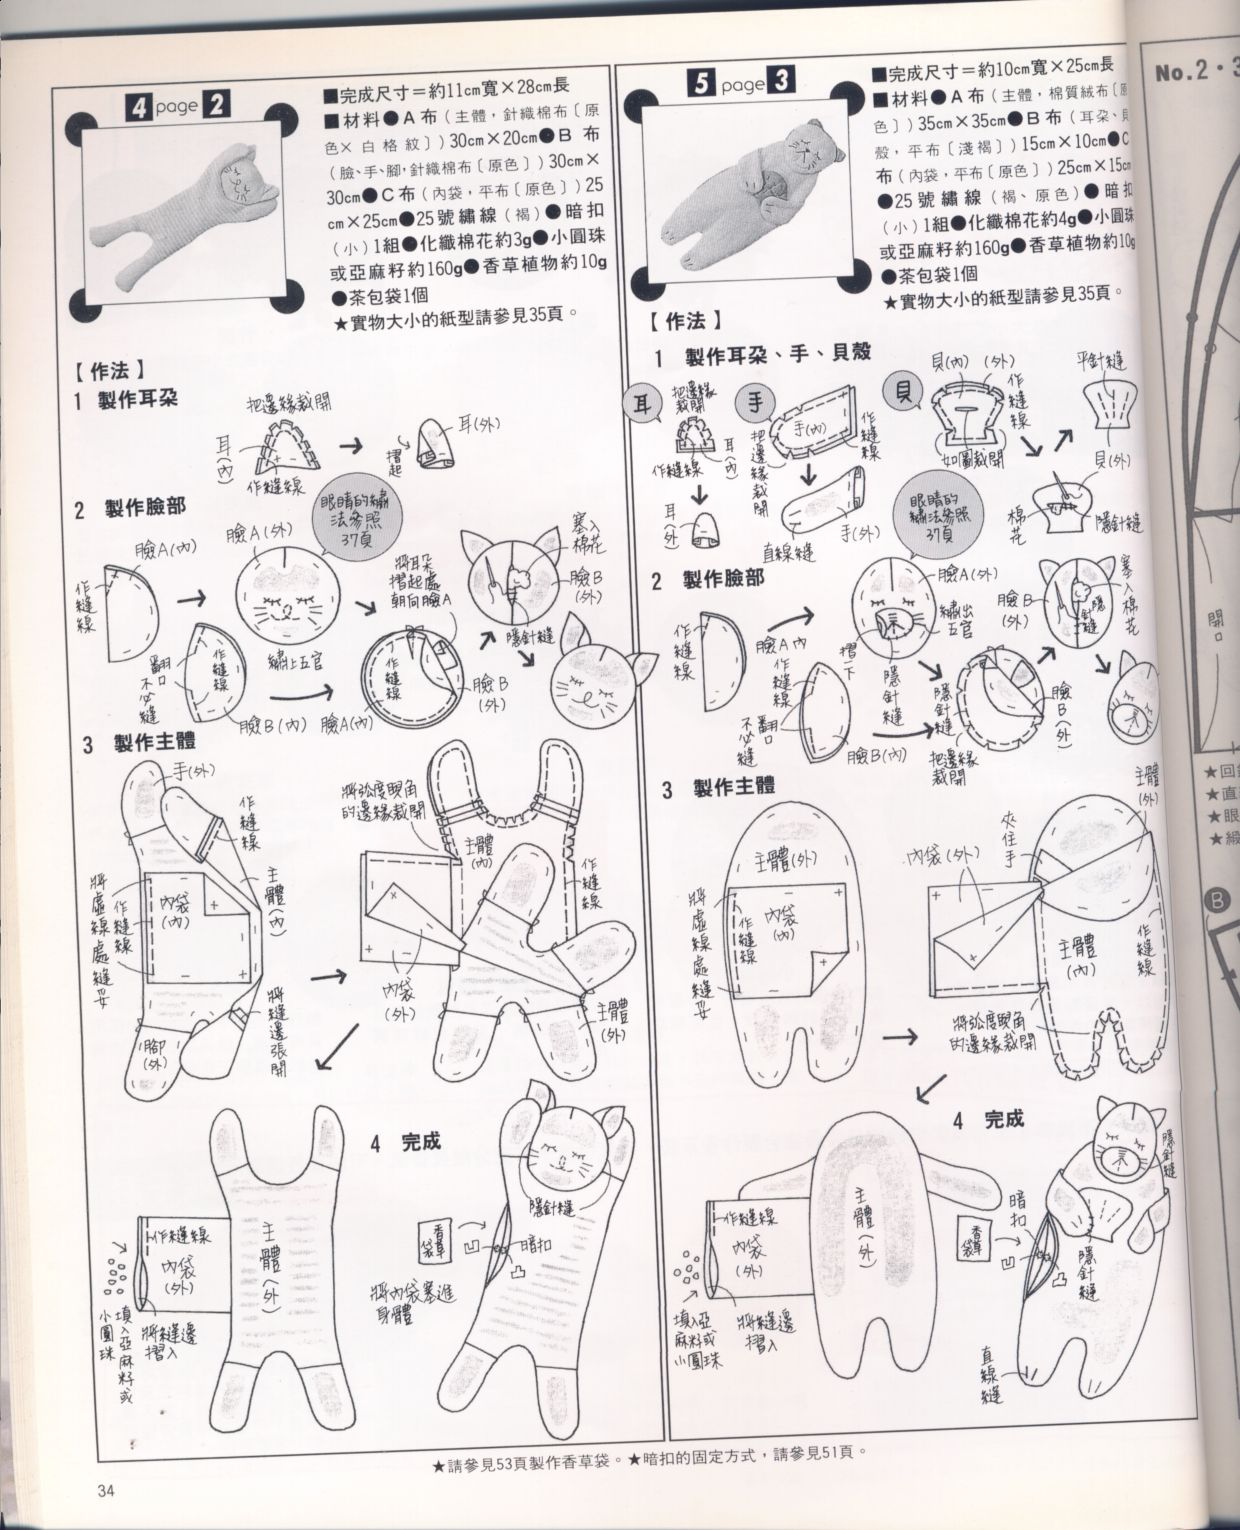 4 page 2
■完成尺寸＝約11cm寬×28cm長
■材料●A布(主體，針織棉布〔原
色×白格紋〕)30cm×20cm●B布
(臉、手、腳，針織棉布〔原色〕)30cm×
30cm●C布(內袋，平布〔原色〕)25
cm×25cm●25號繡線(褐)●暗扣
(小)1組●化纖棉花約3g●小圓珠
或亞麻籽約160g●香草植物約10g
●茶包袋1個
★實物大小的紙型請參見35頁。
【作法】
1 製作耳朵
把邊緣裁開
耳(內)
作縫線
摺起
耳(外)
2 製作臉部
眼睛的繡
法參照
37頁
臉A(內)
作縫線
臉A(外)
繡上五官
翻口不必縫
作縫線
臉B(內)
將耳朵
摺起處
朝向臉A
作縫線
臉A(內)
臉B
(外)
塞入
棉花
臉B
(外)
隱針縫
3 製作主體
手(外)
作縫線
主體(內)
將虛線處縫妥
作縫線
內袋
(內)
將縫邊張開
腳
(外)
將弧度明角
的邊緣裁開
主體
(內)
作縫線
內袋
(外)
主體
(外)
作縫線
內袋
(外)
主體(外)
將縫邊
摺入
填入亞麻籽或
小圓珠
4 完成
隱針縫
香草袋
凹
暗扣
凸
將內袋塞進
身體
5 page 3
■完成尺寸＝約10cm寬×25cm長
■材料●A布(主體，棉質絨布〔原
色〕)35cm×35cm●B布(耳朵、貝
殼，平布〔淺褐〕)15cm×10cm●C
布(內袋，平布〔原色〕)25cm×15cm
●25號繡線(褐、原色)●暗扣
(小)1組●化纖棉花約4g●小圓珠
或亞麻籽約160g●香草植物約10g
●茶包袋1個
★實物大小的紙型請參見35頁。
【作法】
1 製作耳朵、手、貝殼
耳
把邊緣
裁開
耳(內)
作縫線
耳(外)
手
手(內)
作縫線
把邊緣裁開
手(外)
直線縫
貝
貝(內)
(外)
作縫線
如圖裁開
平針縫
貝(外)
棉花
隱針縫
2 製作臉部
眼睛的
繡法參照
37頁
作縫線
臉A內
臉A(外)
繡出
五官
摺一下
隱針縫
作縫線
翻口
不必縫
臉B(內)
隱針縫
把邊緣
裁開
臉B(外)
臉B
(外)
隱針縫
塞入棉花
3 製作主體
主體(外)
將虛線處縫妥
作縫線
內袋
(內)
內袋(外)
夾住手
主體
(外)
主體
(內)
作縫線
將弧度明角
的邊緣裁開
作縫線
內袋
(外)
主體(外)
填入亞
麻籽或
小圓珠
將縫邊
摺入
4 完成
隱針縫
香草袋
凹
暗扣
凸
隱針縫
直線縫
★請參見53頁製作香草袋。★暗扣的固定方式，請參見51頁。
34
No.2・3
開口
★回
★直
★眼
★緞
B